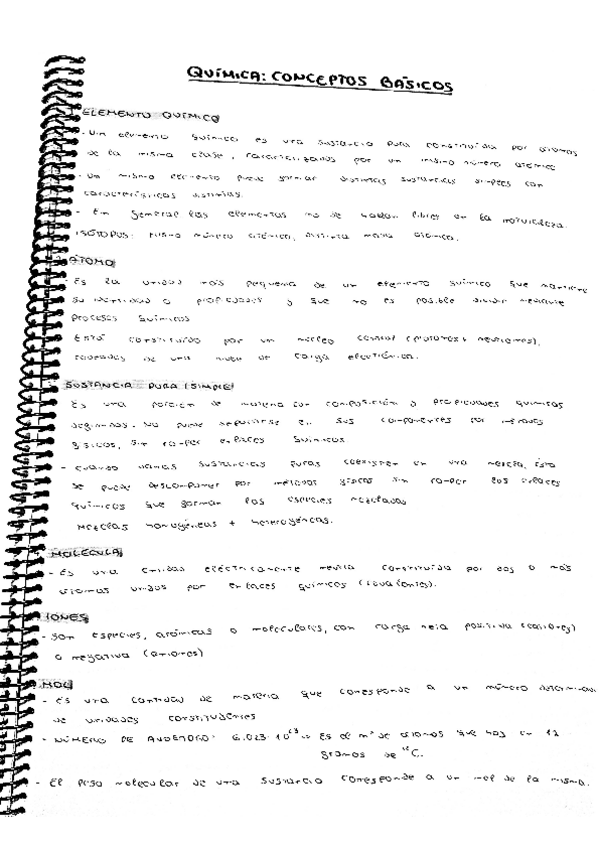 QUÍMICA: CONCEPTOS BÁSICOS
ELEMENTO QUÍMICO
- Un elemento químico es una sustancia pura constituida por átomos
de la misma clase, caracterizados por un mismo número atómico
- Un mismo elemento puede formar distintas sustancias simples con
características distintas.
- En general los elementos no se hallan libres en la naturaleza.
ISÓTOPOS: mismo número atómico, distinta masa atómica.
ÁTOMO
- Es la unidad más pequeña de un elemento químico que mantiene
su identidad o propiedades y que no es posible dividir mediante
procesos químicos
Está constituido por un núcleo central (protones + neutrones),
rodeados de una nube de carga electrónica.
SUSTANCIA PURA (SIMPLE)
Es una porción de materia con composición y propiedades químicas
definidas. No puede separarse en sus componentes por métodos
físicos, sin romper enlaces químicos.
- Cuando varias sustancias puras coexisten en una mezcla, ésta
se puede descomponer por métodos físicos sin romper los enlaces
químicos que forman las especies mezcladas
Mezclas homogéneas + heterogéneas.
MOLÉCULA
- Es una entidad eléctricamente neutra constituida por dos o más
átomos unidos por enlaces químicos (covalentes).
IONES
- Son especies, atómicas o moleculares, con carga neta positiva (cationes)
o negativa (aniones)
MOL
- Es una cantidad de materia que corresponde a un número determinado
de unidades constituyentes
- NÚMERO DE AVOGADRO: 6.023·10²³ → Es el nº de átomos que hay en 12
gramos de ¹²C.
- El peso molecular de una sustancia corresponde a un mol de la misma.